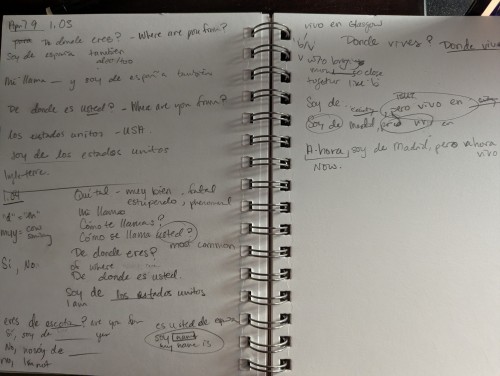 1.03
De donde eres? - Where are you from?
Soy de españa también
Mi llama — y soy de españa también
De donde es usted? - Where are you from?
los estados unitos - USA.
soy de los estados unitos
Inglaterra.
1.04
Qui tal - muy bien - fatal
estúpendo, phenomenal
Mi llamo
Cómo te llamas?
Cómo se llama usted?
most common
Si, No.
De donde eres?
where
De donde es usted.
Soy de los estados unitos
I am
eres de escocia? Are you from
Si, soy de ____ yes
No, no soy de ____
no, I'm not
es usted de españa
soy name
my name is
vivo en Glasgow
b/v
Donde vives? Donde vive
together like b
Soy de. pero vivo en
Soy de Madrid pero vivo en
Ahora, soy de Madrid, pero ahora
vivo
Now.